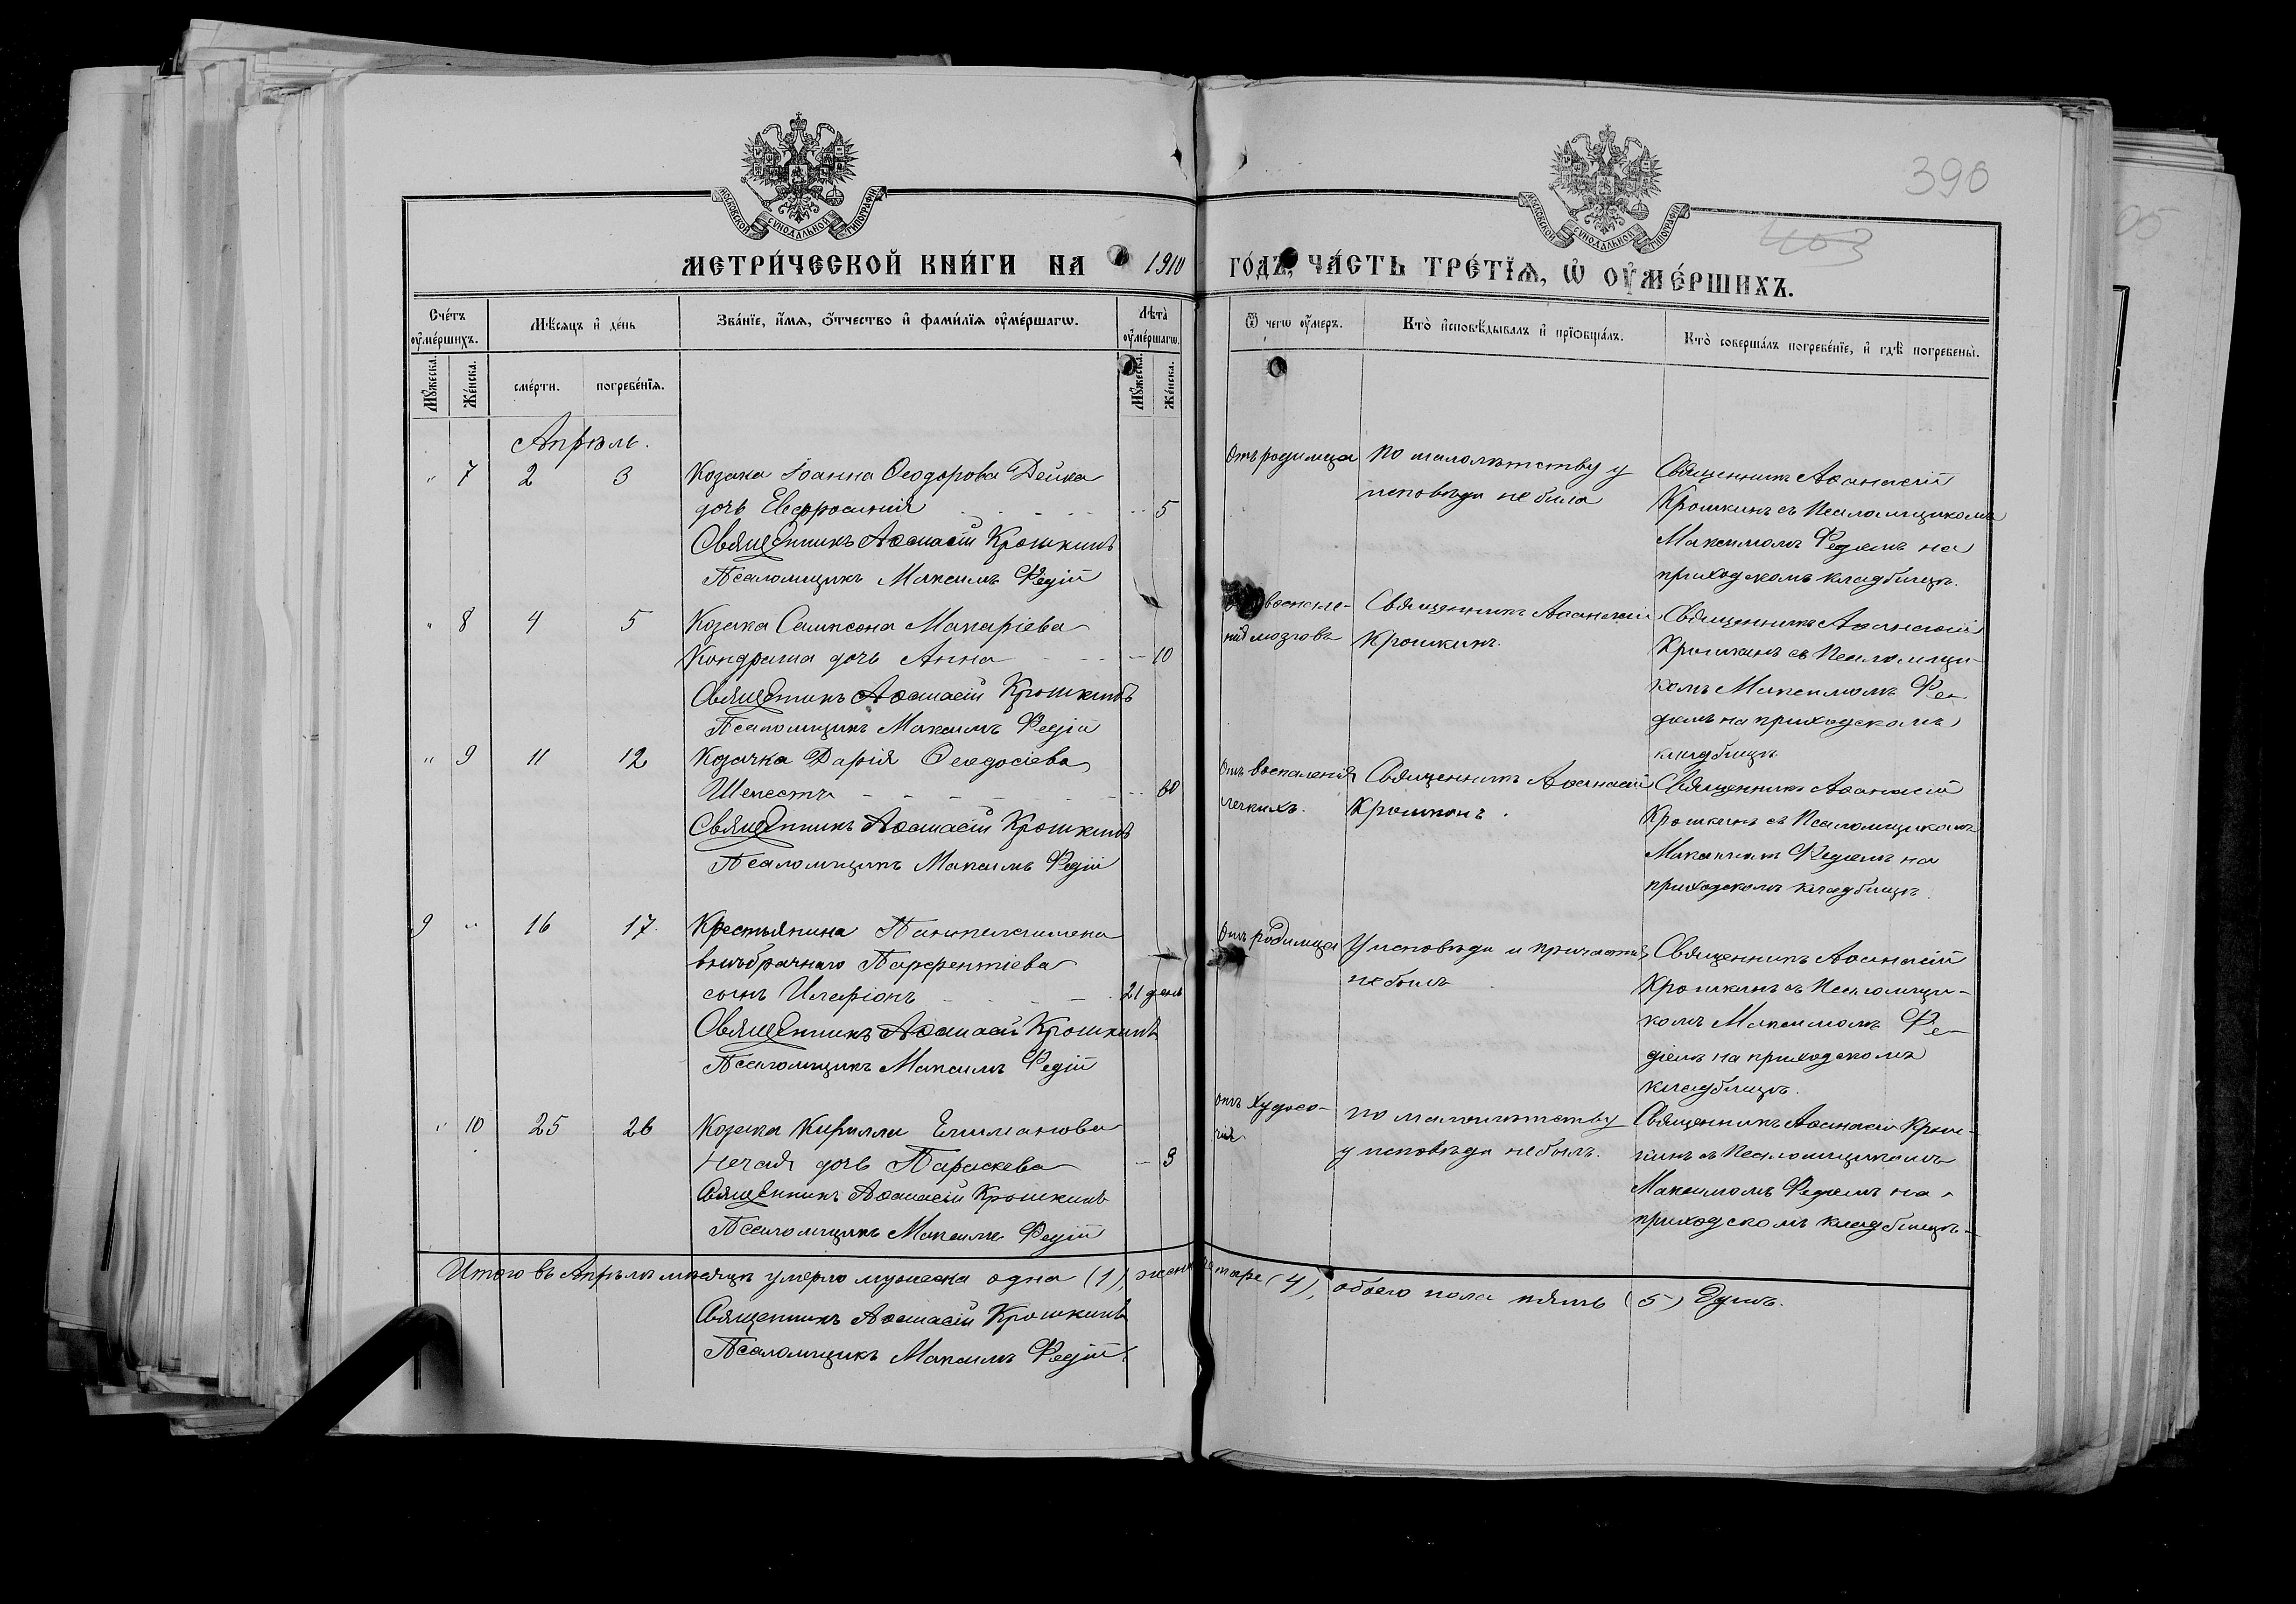 МОСКОВСКОЙ СѴНОДАЛЬНОЙ ТИПОГРАФІИ
МОСКОВСКОЙ СѴНОДАЛЬНОЙ ТИПОГРАФІИ
390
403
05
МЕТРИ́ЧЕСКОЙ КНИ́ГИ НА 1910 ГО́ДЪ, ЧА́СТЬ ТРЕ́ТЇѦ, Ѡ҆ ОУ҆МЕ́РШИХЪ.
Сче́тъ оу҆ме́ршихъ.
Мѣ́сяцъ и҆ де́нь
Зва́нїе, и҆́мѧ, ѻ҆́тчество и҆ фами́лїѧ оу҆ме́ршагѡ.
Лѣ́та оу҆ме́ршагѡ.
Ѿ чегѡ̀ оу҆́меръ.
Кто̀ и҆сповѣ́дывалъ и҆ прїѻбща́лъ.
Кто̀ соверша́лъ погребе́нїе, и҆ гдѣ̀ погребены̀.
Мꙋ́жеска.
Же́нска.
сме́рти.
погребе́нїѧ.
Мꙋ́жеска.
Же́нска.
Апрѣль.
" 7 2 3 Козака Іоанна Ѳеодорова Дейка
дочь Евфросинія - - - - - - 5
Священникъ Аѳанасій Крошкинъ
Псаломщикъ Максимъ Федій
Отъ родимца
По малолѣтству у
исповѣди не была
Священникъ Аѳанасій
Крошкинъ съ Псаломщикомъ
Максимомъ Федіемъ на
приходскомъ кладбищѣ.
" 8 4 5 Козака Сампсона Макаріева
Кондраша дочь Анна - - - 10
Священникъ Аѳанасій Крошкинъ
Псаломщикъ Максимъ Федій
воспале-
нія мозговъ
Священникъ Аѳанасій
Крошкинъ.
Священникъ Аѳанасій
Крошкинъ съ Псаломщи-
комъ Максимомъ Фе-
діемъ на приходскомъ
кладбищѣ
" 9 11 12 Козачка Дарія Ѳеодосіева
Шелестъ - - - - - - 60
Священникъ Аѳанасій Крошкинъ
Псаломщикъ Максимъ Федій
Отъ воспаленія
легкихъ.
Священникъ Аѳанасій
Крошкинъ.
Священникъ Аѳанасій
Крошкинъ съ Псаломщикомъ
Максимомъ Федіемъ на
приходскомъ кладбищѣ.
9 " 16 17. Крестьянина Пантелеимона
внѣбрачнаго Парфентіева
сынъ Иларіонъ - - - - 21 день
Священникъ Аѳанасій Крошкинъ
Псаломщикъ Максимъ Федій
Отъ родимца
У исповѣди и причастія
не былъ
Священникъ Аѳанасій
Крошкинъ съ Псаломщи-
комъ Максимомъ Фе-
діемъ на приходскомъ
кладбищѣ.
" 10 25 26 Козака Кирилла
Нечая дочь Параскева - 3
Священникъ Аѳанасій Крошкинъ
Псаломщикъ Максимъ Федій
отъ худосо-
чія
по малолѣтству
у исповѣди не былъ.
Священникъ Аѳанасій Крош-
кинъ съ Псаломщикомъ
Максимомъ Федіемъ на
приходскомъ кладбищѣ.
Итого въ Апрѣлѣ мѣсяцѣ умерло мужеска одна (1), (4), обоего пола пять (5) душъ.
Священникъ Аѳанасій Крошкинъ
Псаломщикъ Максимъ Федій.